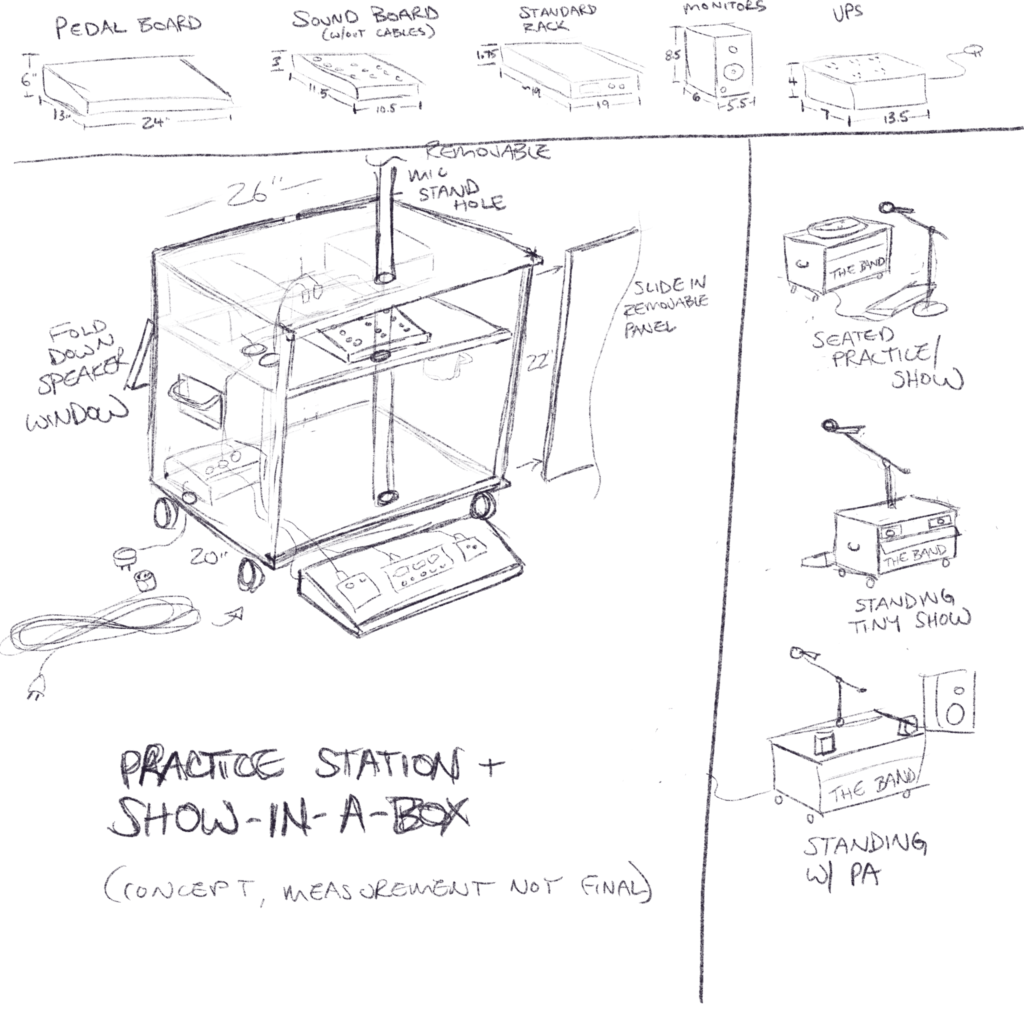 PEDAL BOARD
6"
13"
24"
SOUND BOARD
(W/OUT CABLES)
3
11.5
10.5
STANDARD
RACK
1.75
19
19
MONITORS
8.5
6
5.5
UPS
4
7
13.5
REMOVABLE
MIC
STAND
HOLE
26"
FOLD
DOWN
SPEAKER
WINDOW
22"
SLIDE IN
REMOVABLE
PANEL
20"
PRACTICE STATION +
SHOW-IN-A-BOX
(CONCEPT, MEASUREMENT NOT FINAL)
THE BAND
SEATED
PRACTICE/
SHOW
THE BAND
STANDING
TINY SHOW
THE BAND
STANDING
W/ PA